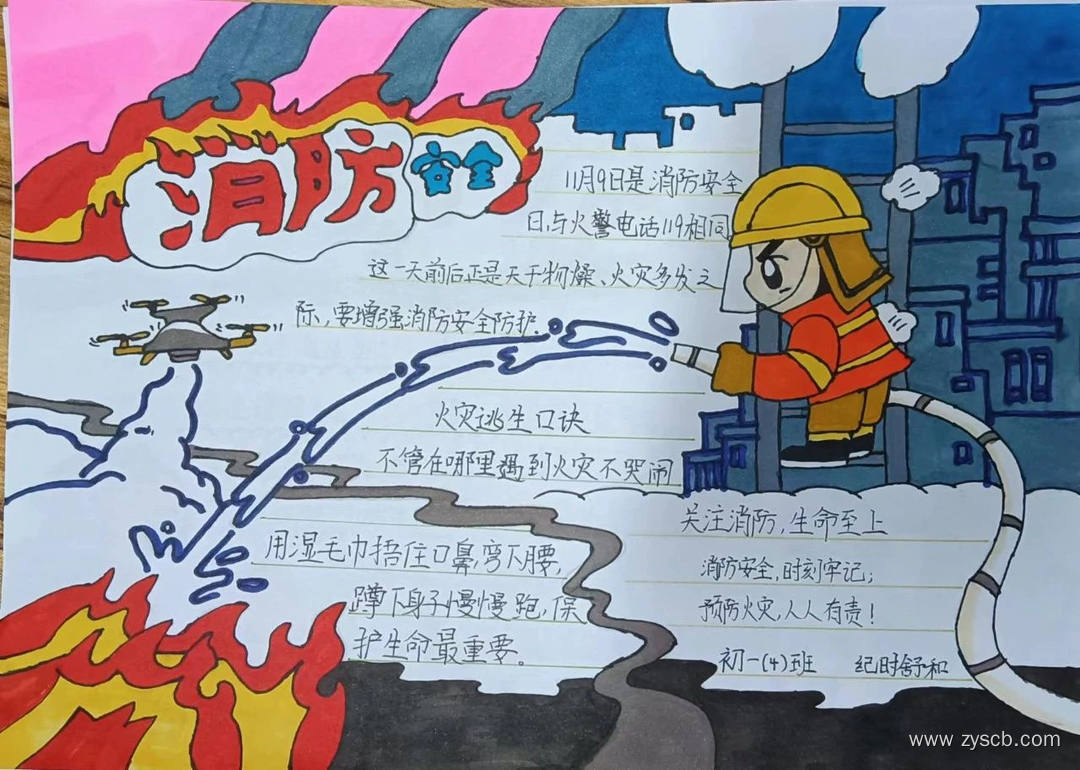 消防安全
11月9日是消防安全
日,与火警电话119相同,
这一天前后正是天干物燥、火灾多发之
际,要增强消防安全防护。
火灾逃生口诀
不管在哪里遇到火灾不哭闹
用湿毛巾捂住口鼻,弯下腰,
蹲下身子慢慢跑,保
护生命最重要。
关注消防,生命至上
消防安全,时刻牢记;
预防火灾,人人有责!
初一(4)班 纪时舒和
www.zyscb.com